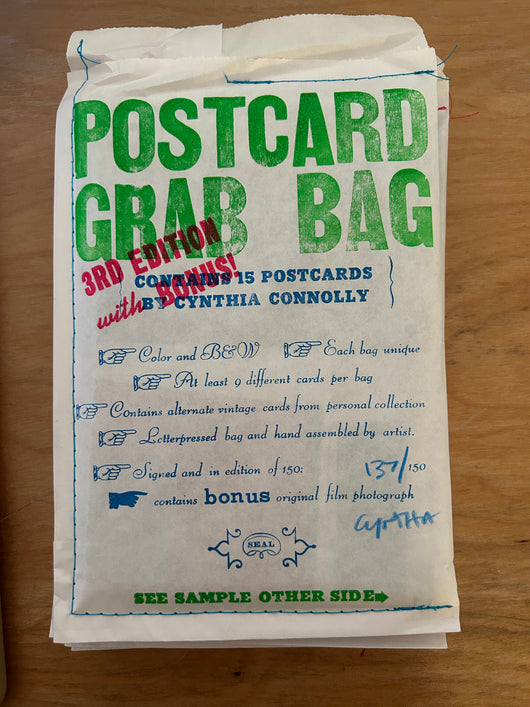 POSTCARD
GRAB BAG
3RD EDITION
with BONUS!
CONTAINS 15 POSTCARDS
BY CYNTHIA CONNOLLY
Color and B&W
Each bag unique
At least 9 different cards per bag
Contains alternate vintage cards from personal collection
Letterpressed bag and hand assembled by artist.
Signed and in edition of 150:
137/150
contains bonus original film photograph
CYNTHIA
SEAL
SEE SAMPLE OTHER SIDE